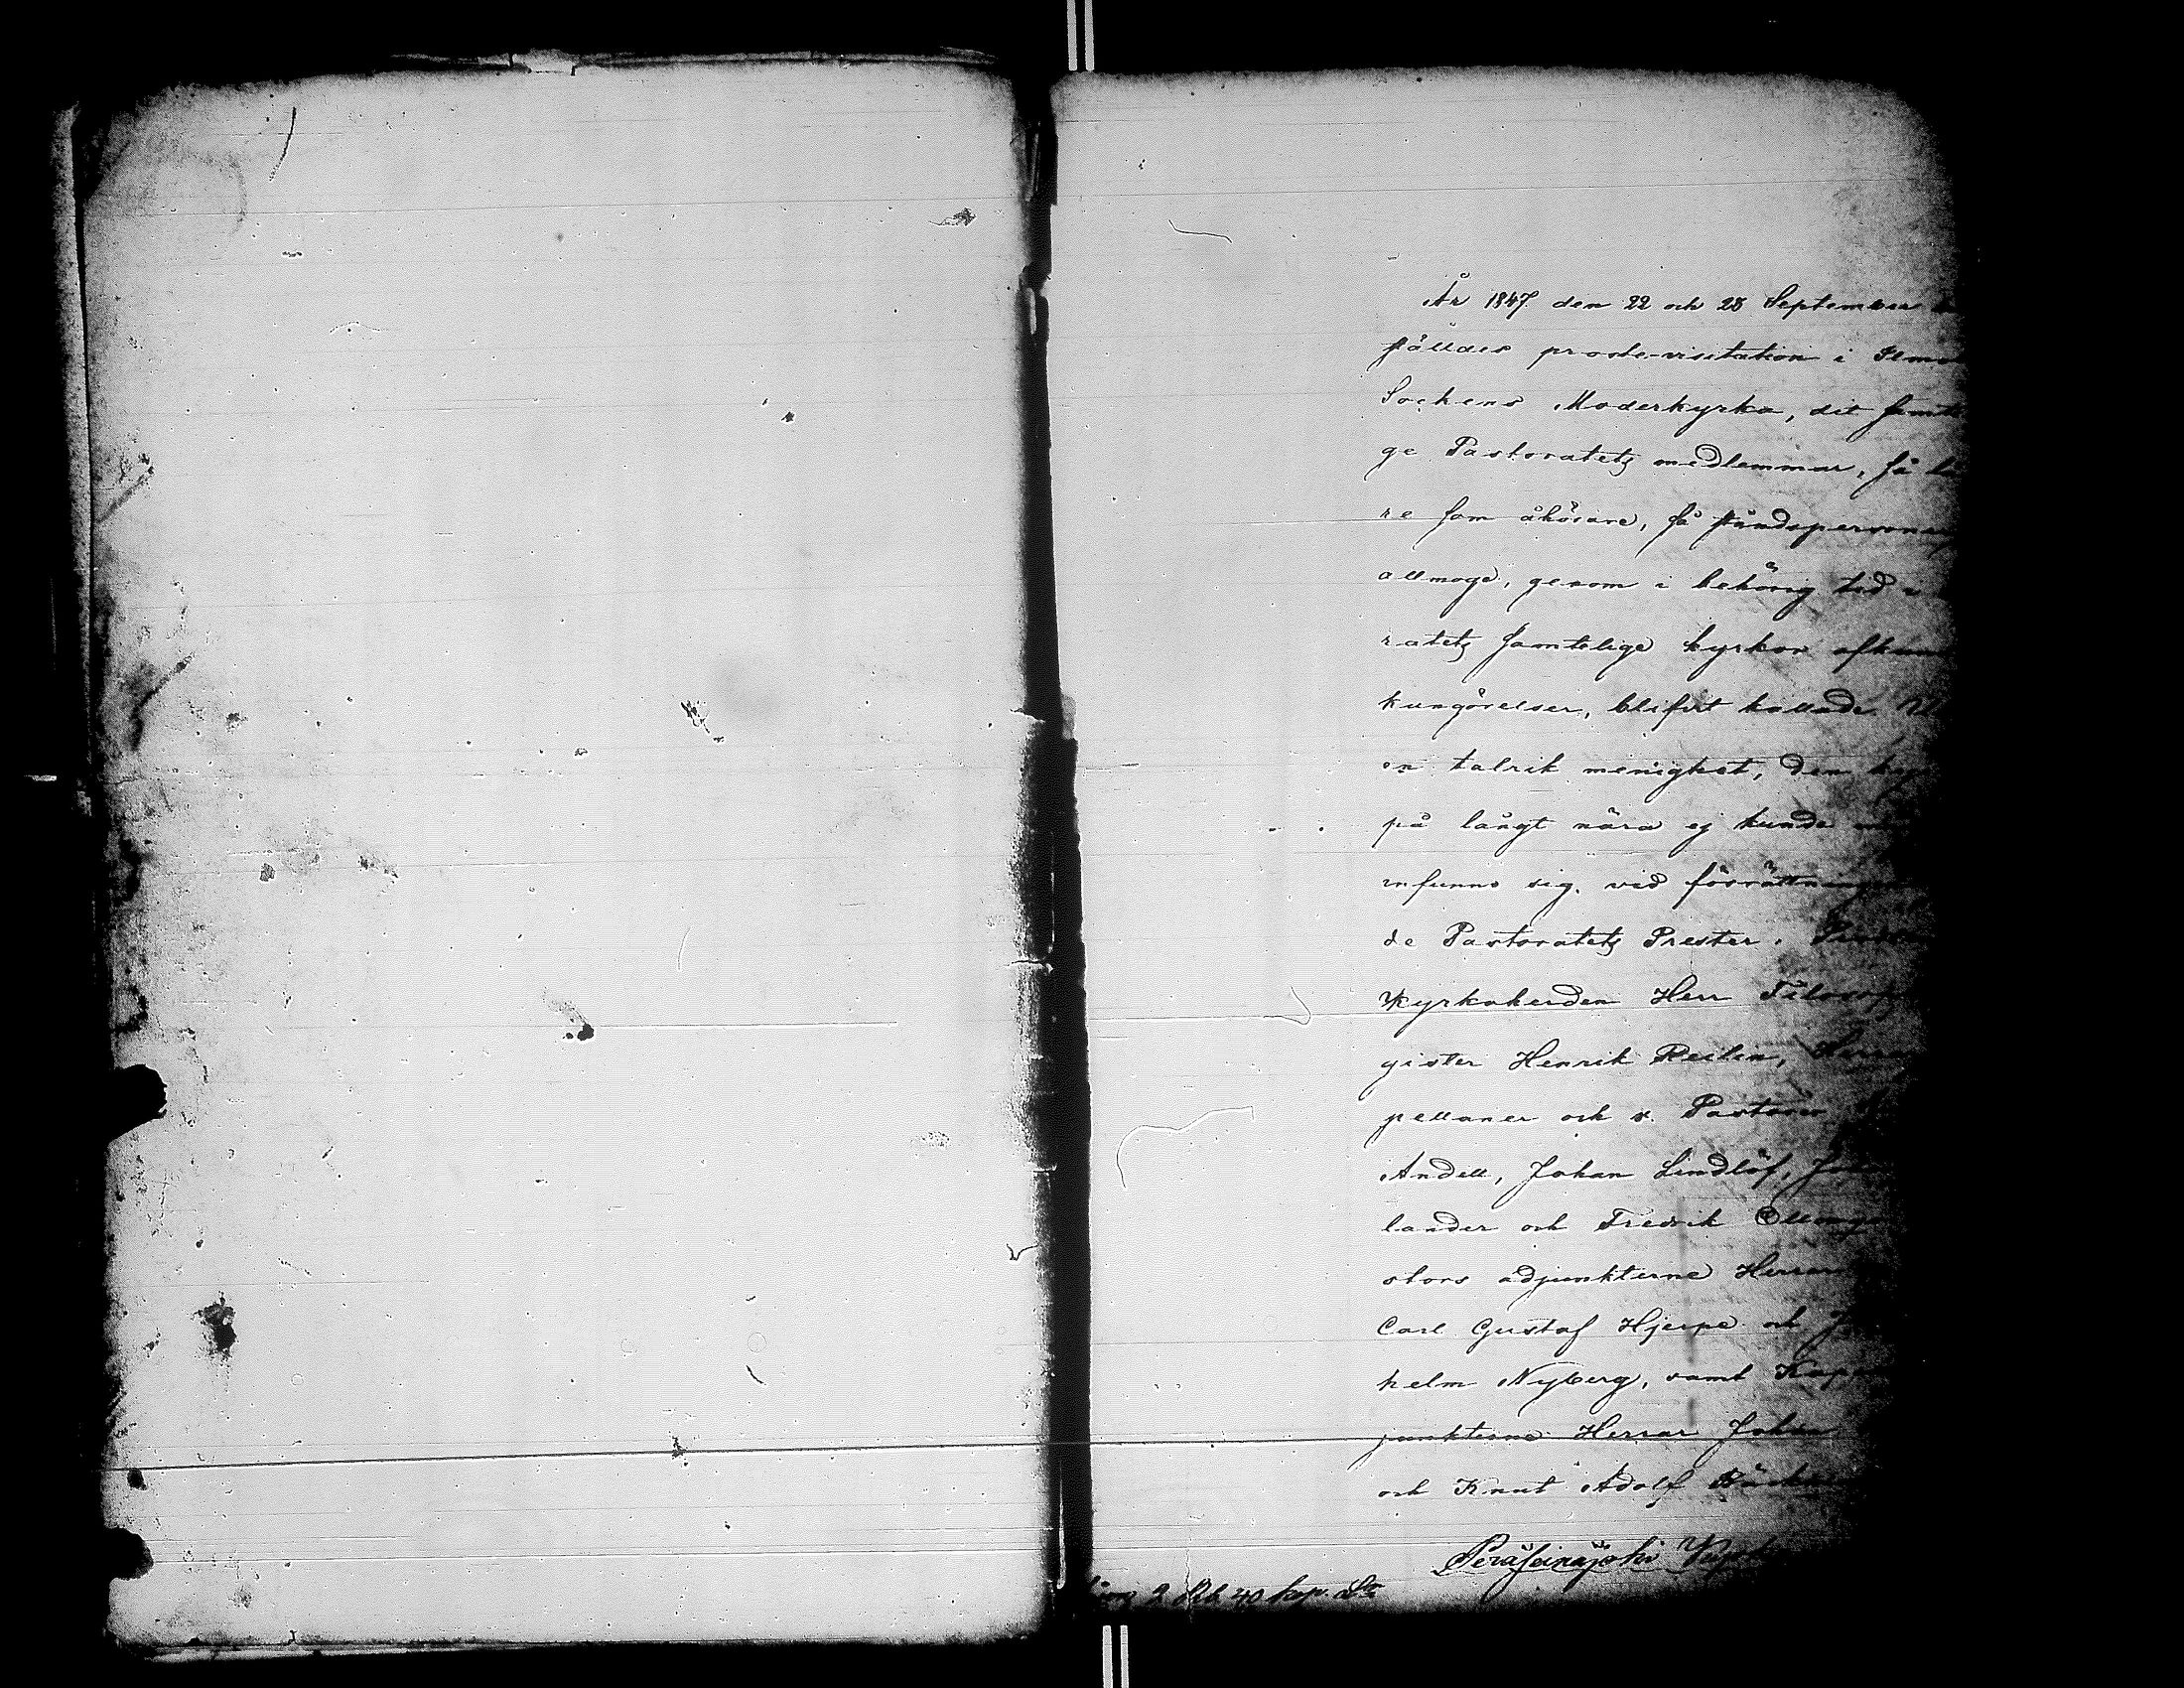 År 1847 den 22 och 23 September
ställdes proste-visitation i Ilmola
Sockens Moderkyrka, dit samteli
ge Pastoratets medlemmar, så lä
re som åhörare, så ståndspersoner
allmoge, genom i behörig tid i
ratets samtelige kyrkor afkun
kungörelser, blifvit kallade.
en talrik menighet, den
på långt nära ej kunde
infunno sig. vid förrättningen
de Pastoratets Prester.
Kyrkoherden Herr Filosofie
gister Henrik Reilin, Herrar
pellaner och v. Pastorer
Andell, Johan Lindlöf,
lander och Fredrik
stors adjunkterne Herrar
Carl Gustaf Hjerpe och
helm Nyberg, samt Kapell
junkterne Herrar Johan
och Knut Adolf
Peräseinäjoki
2 Rub. 40 kop. Sr